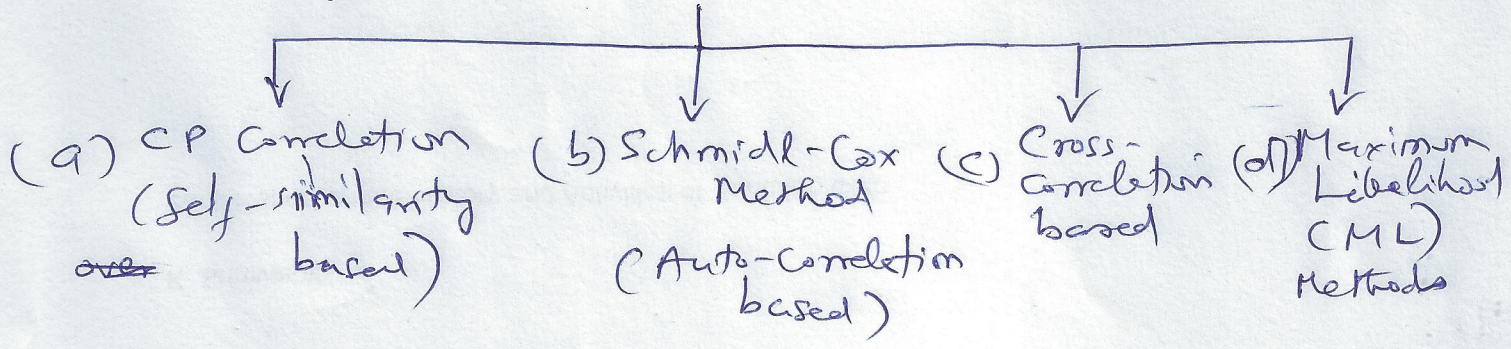 (a) CP Correlation
(Self-similarity
over based)
(b) Schmidl-Cox
Method
(Auto-Correlation
based)
(c) Cross-
Correlation
based
(d) Maximum
Likelihood
(ML)
Methods